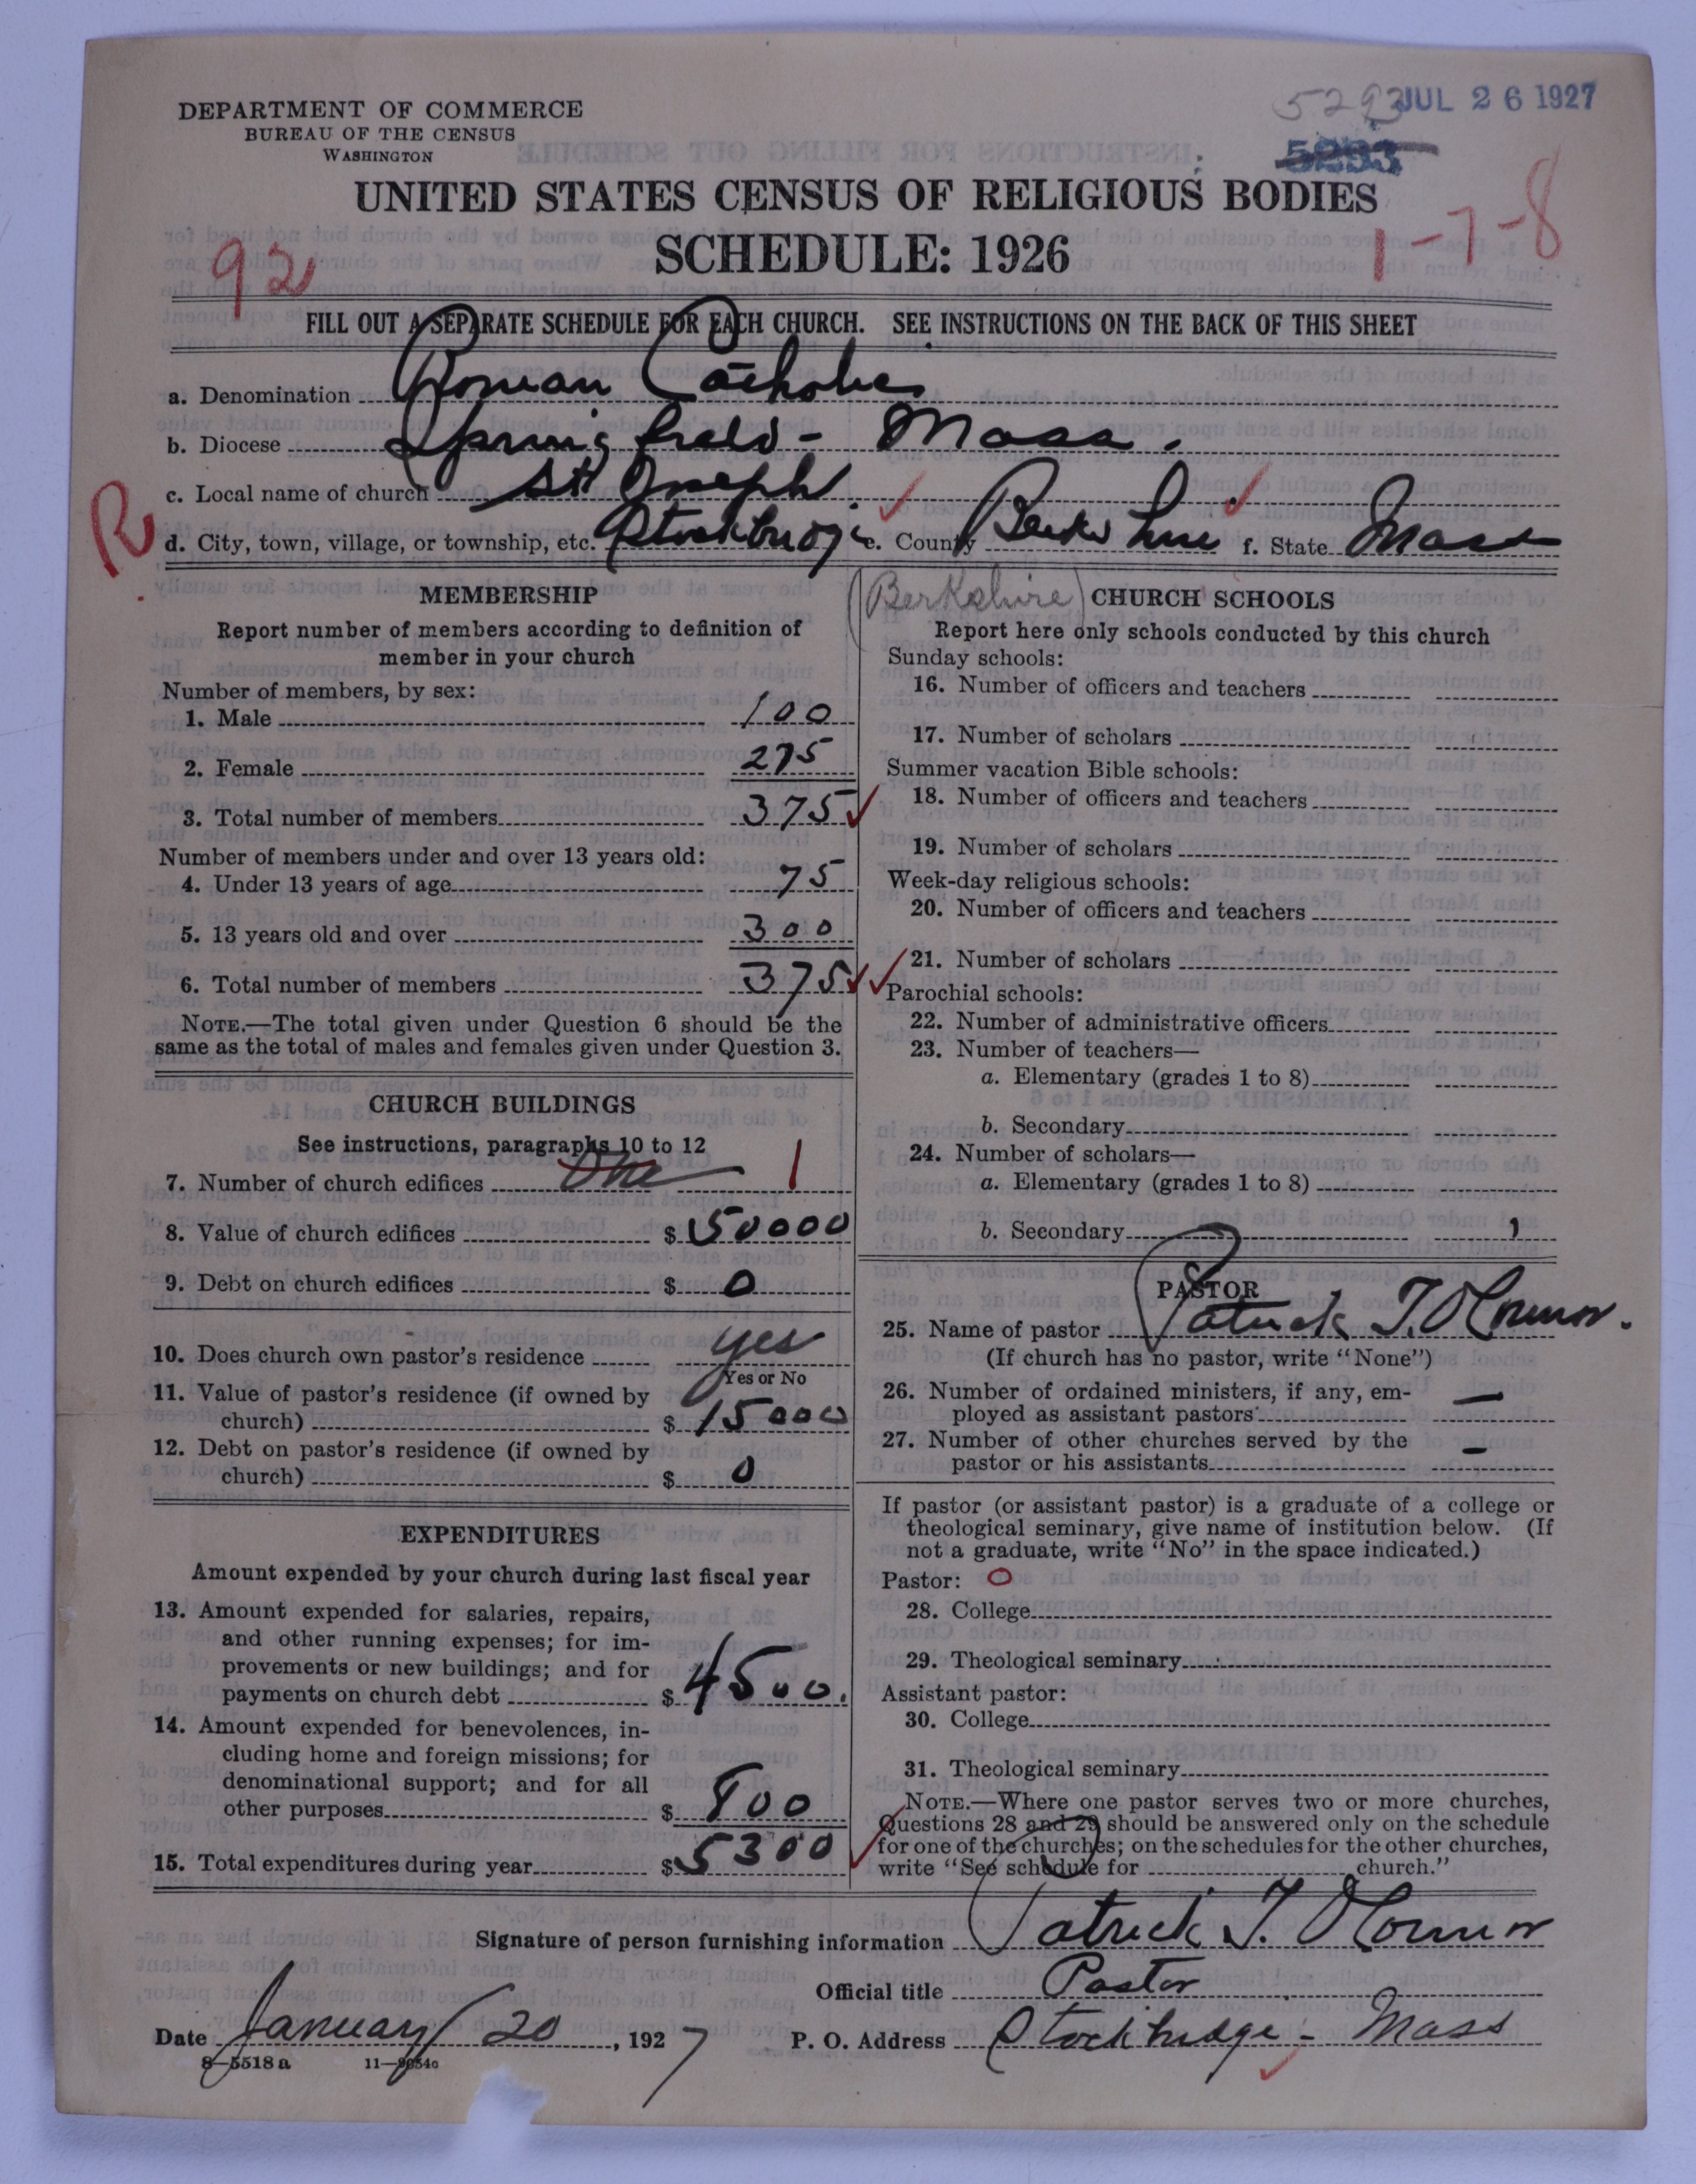 DEPARTMENT OF COMMERCE
BUREAU OF THE CENSUS
WASHINGTON
5293 JUL 26 1927
5293
UNITED STATES CENSUS OF RELIGIOUS BODIES
SCHEDULE: 1926
92
1-7-8
FILL OUT A SEPARATE SCHEDULE FOR EACH CHURCH. SEE INSTRUCTIONS ON THE BACK OF THIS SHEET
a. Denomination Roman Catholic
b. Diocese Springfield - Mass.
c. Local name of church St Joseph
R
d. City, town, village, or township, etc. Stockbridge e. County Berkshire f. State Mass
(Berkshire)
MEMBERSHIP
Report number of members according to definition of
member in your church
Number of members, by sex:
1. Male 100
2. Female 275
3. Total number of members 375
Number of members under and over 13 years old:
4. Under 13 years of age 75
5. 13 years old and over 300
6. Total number of members 375
NOTE.—The total given under Question 6 should be the
same as the total of males and females given under Question 3.
CHURCH BUILDINGS
See instructions, paragraphs 10 to 12
7. Number of church edifices One 1
8. Value of church edifices $ 50000
9. Debt on church edifices $ 0
10. Does church own pastor's residence yes
Yes or No
11. Value of pastor's residence (if owned by
church) $ 15000
12. Debt on pastor's residence (if owned by
church) $ 0
EXPENDITURES
Amount expended by your church during last fiscal year
13. Amount expended for salaries, repairs,
and other running expenses; for im-
provements or new buildings; and for
payments on church debt $ 4500.
14. Amount expended for benevolences, in-
cluding home and foreign missions; for
denominational support; and for all
other purposes $ 800
15. Total expenditures during year $ 5300
CHURCH SCHOOLS
Report here only schools conducted by this church
Sunday schools:
16. Number of officers and teachers
17. Number of scholars
Summer vacation Bible schools:
18. Number of officers and teachers
19. Number of scholars
Week-day religious schools:
20. Number of officers and teachers
21. Number of scholars
Parochial schools:
22. Number of administrative officers
23. Number of teachers—
a. Elementary (grades 1 to 8)
b. Secondary
24. Number of scholars—
a. Elementary (grades 1 to 8)
b. Secondary
PASTOR
25. Name of pastor Patrick T. O'Connor.
(If church has no pastor, write "None")
26. Number of ordained ministers, if any, em-
ployed as assistant pastors —
27. Number of other churches served by the
pastor or his assistants —
If pastor (or assistant pastor) is a graduate of a college or
theological seminary, give name of institution below. (If
not a graduate, write "No" in the space indicated.)
Pastor: O
28. College
29. Theological seminary
Assistant pastor:
30. College
31. Theological seminary
NOTE.—Where one pastor serves two or more churches,
Questions 28 and 29 should be answered only on the schedule
for one of the churches; on the schedules for the other churches,
write "See schedule for church."
Signature of person furnishing information Patrick T. O'Connor
Official title Pastor
Date January 20, 1927 P. O. Address Stockbridge - Mass
8—5518a 11—9054a